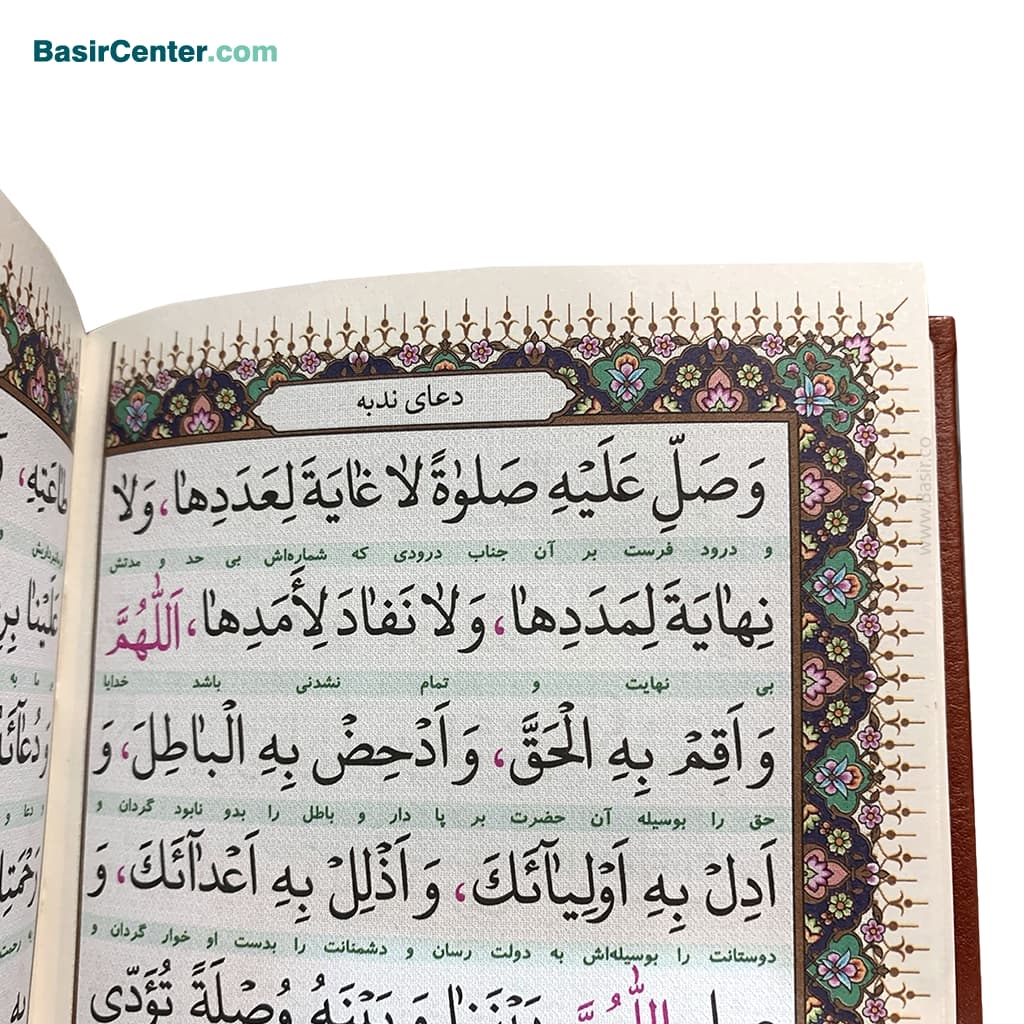 BasirCenter.com
دعای ندبه
وَ صَلِّ عَلَيْهِ صَلٰوةً لاٰ غٰايَةَ لِعَدَدِهٰا، وَلاٰ
و درود فرست بر آن جناب درودی که شماره‌اش بی حد و مدتش
نِهٰايَةَ لِمَدَدِهٰا، وَلاٰ نَفٰادَ لِأَمَدِهٰا، اَللّٰهُمَّ
بی نهایت و تمام نشدنی باشد خدایا
وَ اَقِمْ بِهِ الْحَقَّ، وَ اَدْحِضْ بِهِ الْبٰاطِلَ، وَ
حق را بوسیله آن حضرت بر پا دار و باطل را بدو نابود گردان و
اَدِلْ بِهِ اَوْلِيٰآئَكَ، وَ اَذْلِلْ بِهِ اَعْدٰآئَكَ، وَ
دوستانت را بوسیله‌اش به دولت رسان و دشمنانت را بدست او خوار گردان و
اللّٰهُمَّ بَيْنَنٰا وَ بَيْنَهُ وُصْلَةً تُؤَدّى
www.basir.co